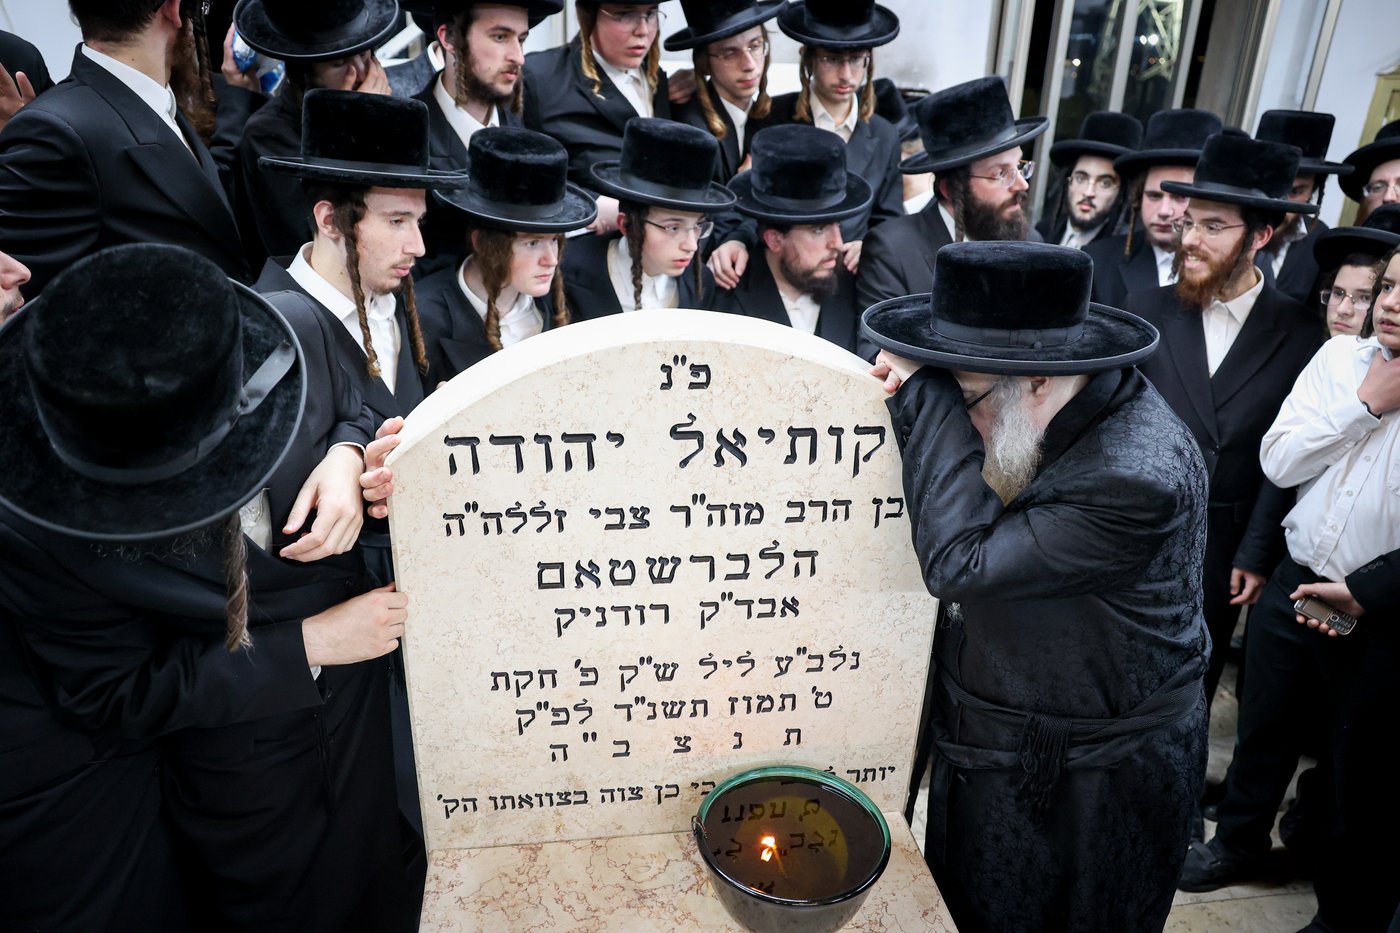 פ"נ
קותיאל יהודה
בן הרב מוה"ר צבי זללה"ה
הלברשטאם
אבד"ק רודניק
נלב"ע ליל ש"ק פ' חקת
ט' תמוז תשנ"ד לפ"ק
ת נ צ ב "ה
יותר כי כן צוה בצוואתו הק'